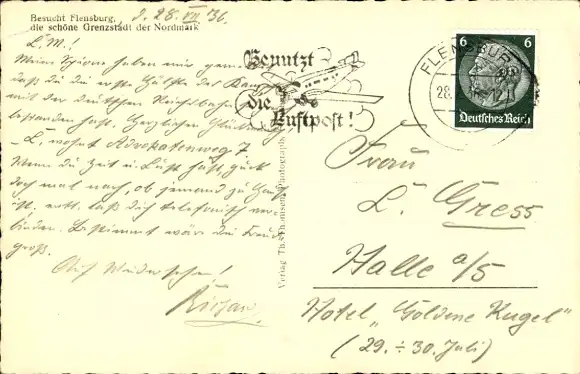 Besucht Flensburg,
die schöne Grenzstadt der Nordmark
d. 28. VII 36.
L. M.!
Meine Spione haben mir gem
daß du die erste Hälfte des
mit der deutschen Reichsbahn
bestanden hast. Herzlichen Glückwunsch
L. wohnt Advokatenweg 7
Wenn du Zeit u. Lust hast, guck
doch mal nach, ob jemand zu Haus
ist, evtl. laß dich telefonisch ver-
binden. Bestimmt wäre die Freude
groß.
Auf Wiedersehen!
Benutzt
die
Luftpost!
FLENSBURG
28.
6 6
Deutsches Reich
Verlag Th. Thomsen, Photograph
Frau
L. Gress
Halle a/S
Hotel „Goldene Kugel"
(29. ÷ 30. Juli)